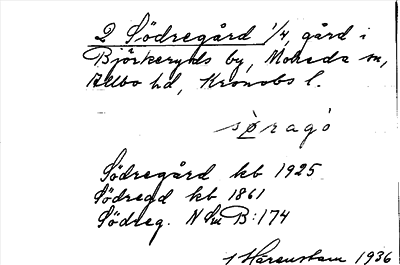 2 Södregård 1/4, gård i
Björkeryds by, Moheda sn,
Allbo hd, Kronobs l.
sø̀ragò
Södregård kb 1925
Södregd kb 1861
Södreg. N Su B:174
Härenstam 1936